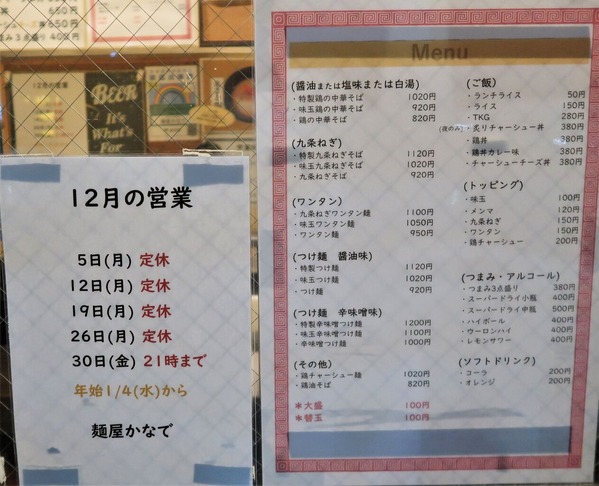 650円
650円
400円
12月の営業
BEER
It's
What's
For
12月の営業
5日(月) 定休
12日(月) 定休
19日(月) 定休
26日(月) 定休
30日(金) 21時まで
年始1/4(水)から
麺屋かなで
Menu
(醤油または塩味または白湯)
・特製鶏の中華そば 1020円
・味玉鶏の中華そば 920円
・鶏の中華そば 820円
(九条ねぎ)
・特製九条ねぎそば 1120円
・味玉九条ねぎそば 1020円
・九条ねぎそば 920円
(ワンタン)
・九条ねぎワンタン麺 1100円
・味玉ワンタン麺 1050円
・ワンタン麺 950円
(つけ麺 醤油味)
・特製つけ麺 1120円
・味玉つけ麺 1020円
・つけ麺 920円
(つけ麺 辛味噌味)
・特製辛味噌つけ麺 1200円
・味玉辛味噌つけ麺 1100円
・辛味噌つけ麺 1000円
(その他)
・鶏チャーシュー麺 1020円
・鶏油そば 820円
＊大盛 100円
＊替玉 100円
(ご飯)
・ランチライス 50円
・ライス 150円
・TKG 280円
(夜のみ)・炙りチャーシュー丼 380円
・鶏丼 380円
・鶏丼カレー味 380円
・チャーシューチーズ丼 380円
(トッピング)
・味玉 100円
・メンマ 120円
・九条ねぎ 150円
・ワンタン 150円
・鶏チャーシュー 200円
(つまみ・アルコール)
・つまみ3点盛り 380円
・スーパードライ小瓶 400円
・スーパードライ中瓶 500円
・ハイボール 400円
・ウーロンハイ 400円
・レモンサワー 400円
(ソフトドリンク)
・コーラ 200円
・オレンジ 200円